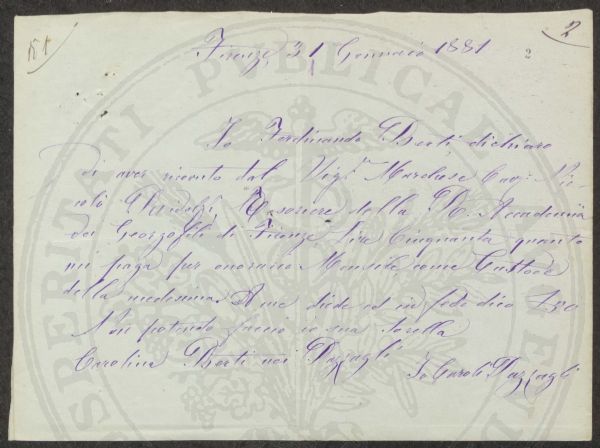 51
2
Firenze, 31 Gennaio 1881
2
Io Ferdinando Berti dichiaro
di aver ricevuto dal Sigr. Marchese Cav: Nic-
colò Ridolfi, Tesoriere della R. Accademia
dei Georgofili di Firenze lire Cinquanta quanto
mi paga per onorario Mensile, come Custode
della medesima. A me diede ed in fede dico £50
Non potendo faccio io sua sorella
Carolina Berti nei Pazzagli
Io Caroli Pazzagli
PROSPERITATI PUBLICAE